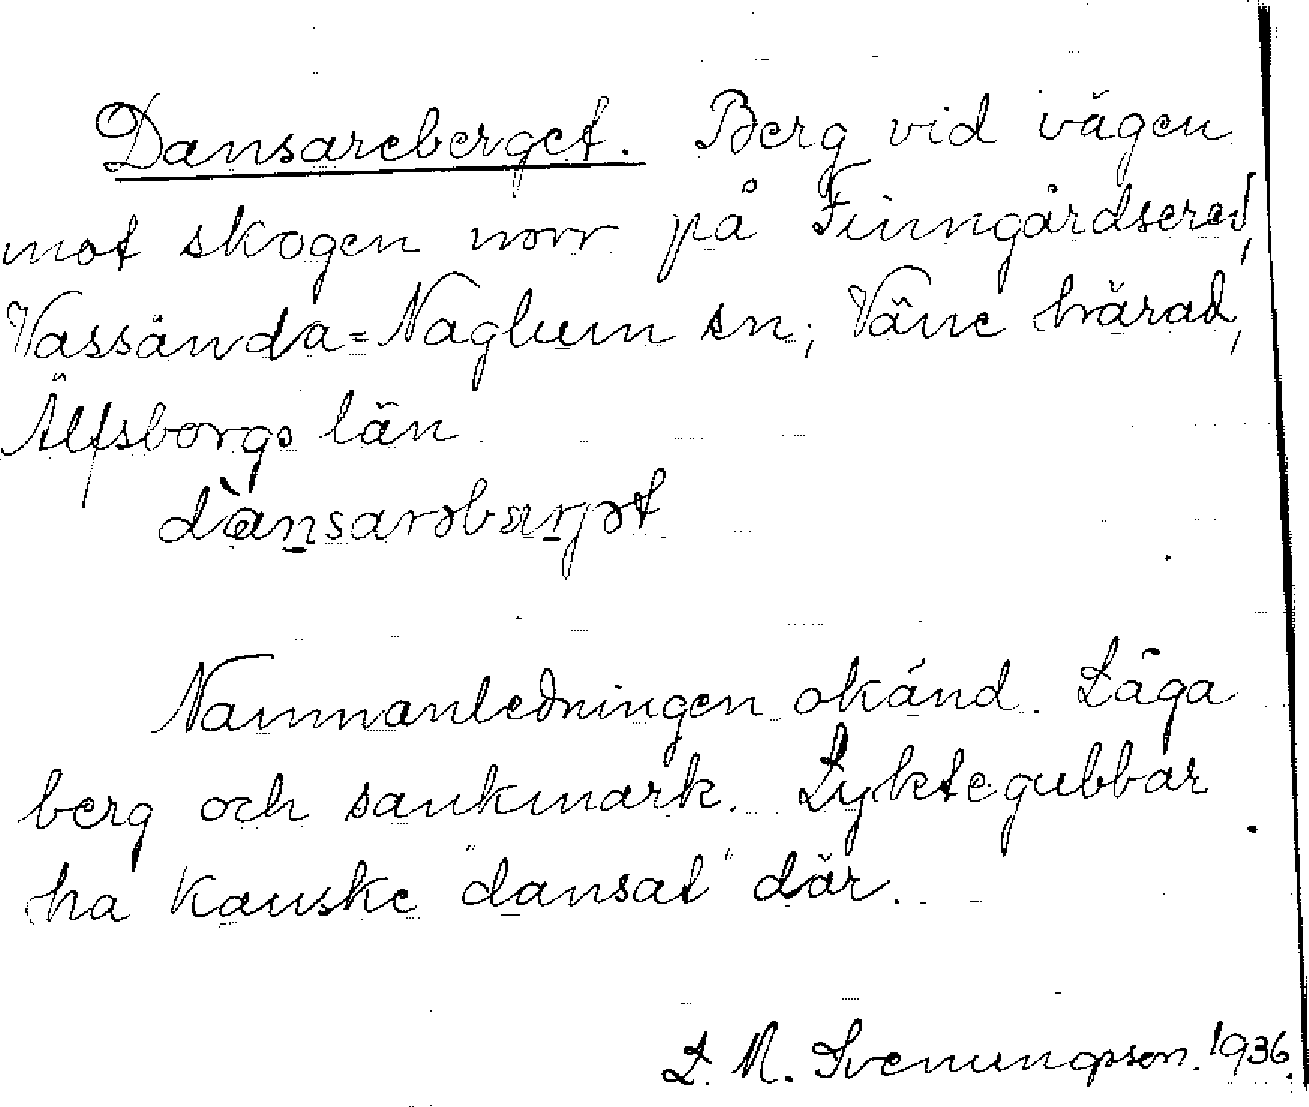 Dansareberget. Berg vid vägen
mot skogen norr på Finngårdsered,
Vassända=Naglum sn; Väne härad,
Älfsborgs län
dànsarəbærjət
Namnanledningen okänd. Låga
berg och sankmark. Lyktegubbar
ha kanske "dansat" där.
L. M. Svenungsson. 1936.